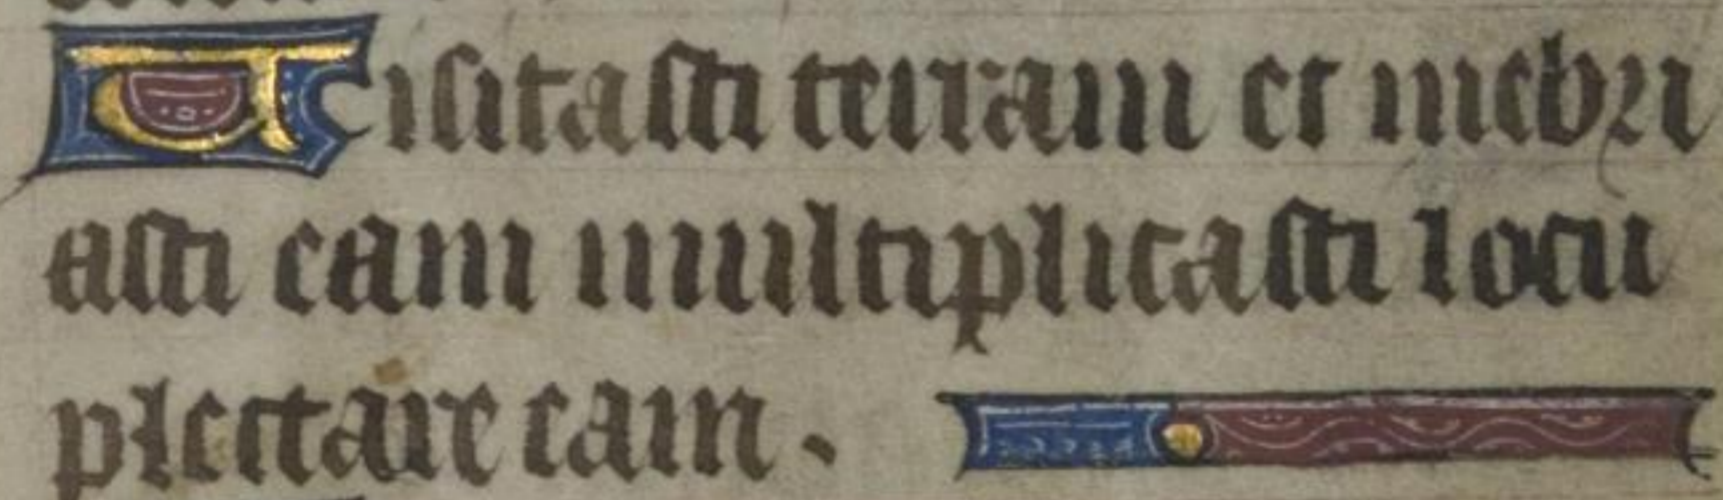 Uisitasti terram et inebri
asti eam multiplicasti locu
plectare eam.